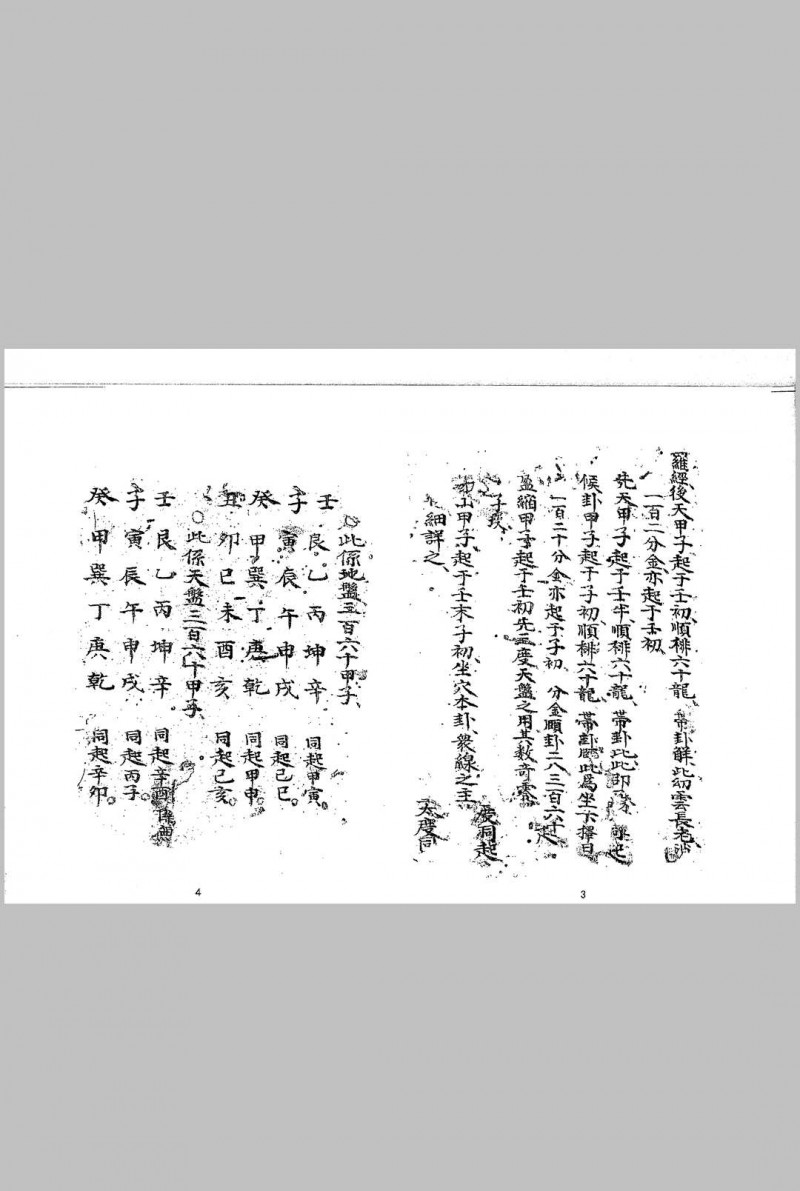 羅經後天甲子起于壬初、順排六十龍、帶卦解、此幼雲長老沙
一百二分金、亦起于壬初、
先天甲子起于壬半、順排六十龍、帶卦比、此即
候卦甲子起于子初、順排六十龍、帶卦此為坐下擇日
一百二十分金、亦起于子初、分金頤卦二八三百六十起。
盈縮甲子起于壬初先五度天盤之用其数奇零
子
山甲子起于壬末子初坐穴本卦、衆線之主、度同起
細詳之。太度同
3
○此係地盤三百六十甲子、
壬艮乙丙坤辛同起甲寅。
子寅辰午申戌同起己巳。
癸甲巽丁庚乾同起甲申。
丑卯巳未酉亥同起己亥。
○此係天盤三百六十甲子、
壬艮乙丙坤辛。同起辛酉
子寅辰午申戌同起丙子。
癸甲巽丁庚乾同起辛卯。
4